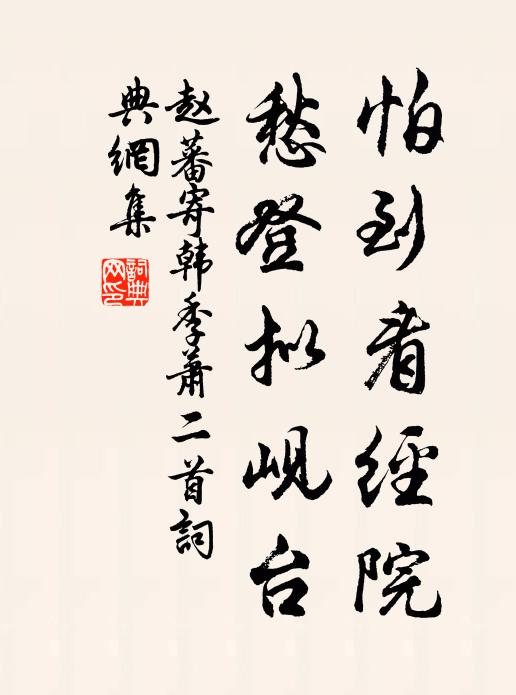 怕到看經院
愁登拟峴台
赵蕃寄韩季萧二首詞
典網集
詞典网印